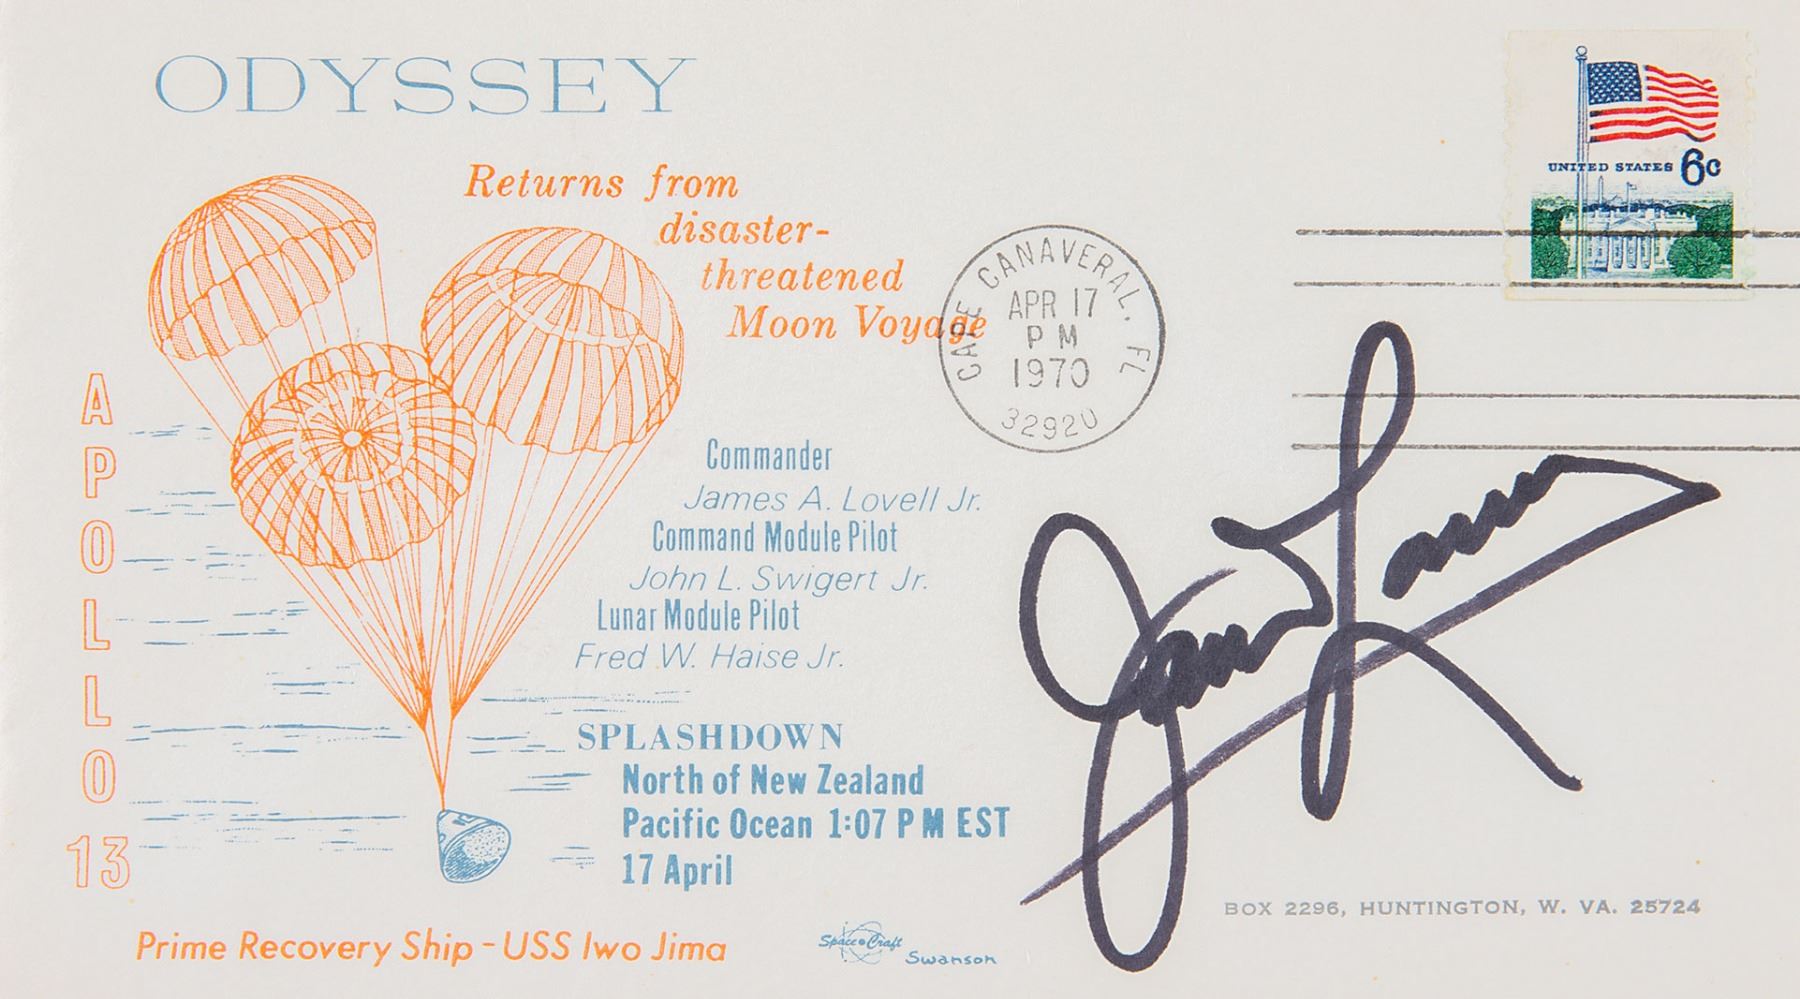 ODYSSEY
Returns from
disaster-
threatened
Moon Voyage
UNITED STATES 6c
CAPE CANAVERAL, FL
APR 17
PM
1970
32920
APOLLO
13
Commander
James A. Lovell Jr.
Command Module Pilot
John L. Swigert Jr.
Lunar Module Pilot
Fred W. Haise Jr.
SPLASHDOWN
North of New Zealand
Pacific Ocean 1:07 PM EST
17 April
James Lovell
BOX 2296, HUNTINGTON, W. VA. 25724
Prime Recovery Ship - USS Iwo Jima
Space Craft
Swanson